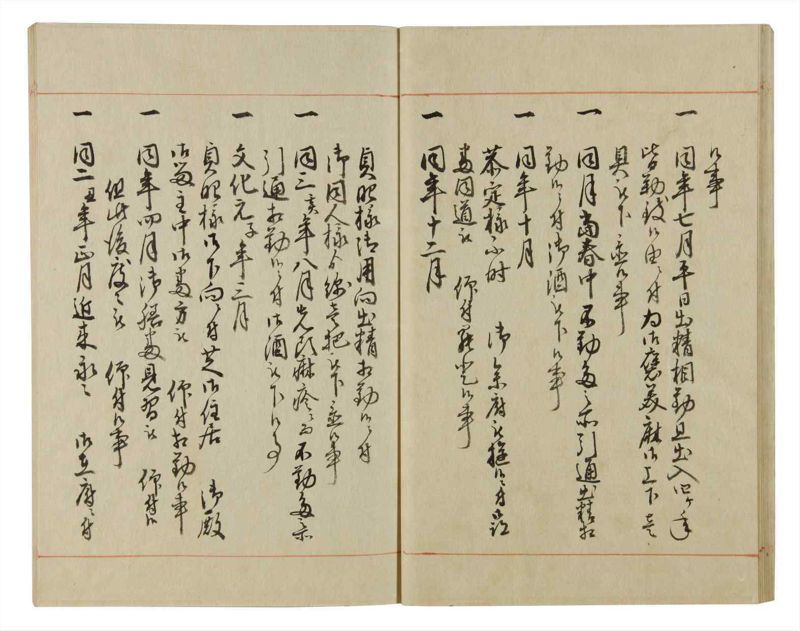 候事
一 同年七月平日出精相勤且出入
皆勤候由ニ付為御褒美麻御上下壱
具被下置候事
一 同月当春中不勤多之所引通出精相
勤候ニ付御酒被下候事
一 同年十月
恭定様 御参府被 候ニ付
同道被 仰付罷登候事
一 同年十二月
貞昭様御用向出精相勤候ニ付
御同人様より 壱把被下置候事
一 同三亥年八月先頃麻疹ニ而不勤多之所
引通相勤候ニ付御酒被下候事
一 文化元子年三月
貞昭様御下向ニ付芝御住居 御殿
御留主中御 方被 仰付相勤候事
一 同年四月御膳 見習被 仰付候
但此後度々被 仰付候事
一 同二丑年正月近来永之 御在府ニ付